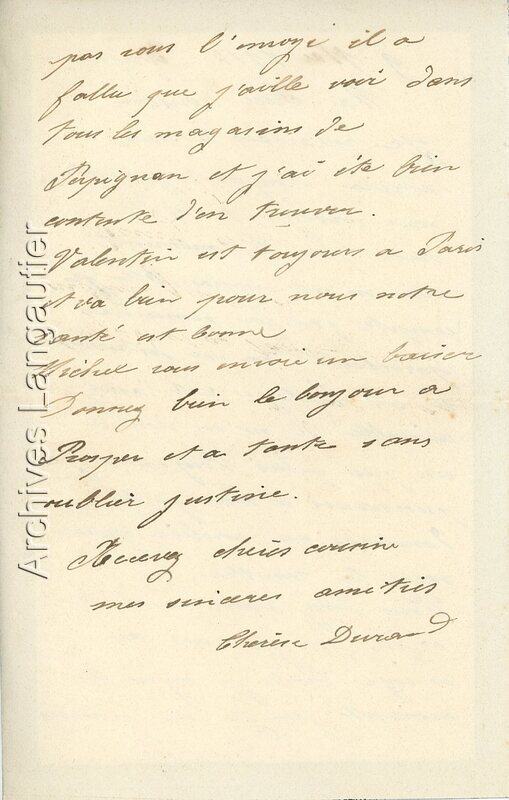 pas vous l'envoyé il a
fallu que j'aille voir dans
tous les magasins de
Perpignan et j'ai été bien
contente d'en trouver.
Valentin est toujours a Paris
et va bien pour nous notre
santé est bonne
Michel vous envoie un baiser
Donnez bien le bonjour a
Prosper et a tante sans
oublier Justine.
Recevez chères cousine
mes sinceres amitiés
Thérèse Durand
Archives Langautier